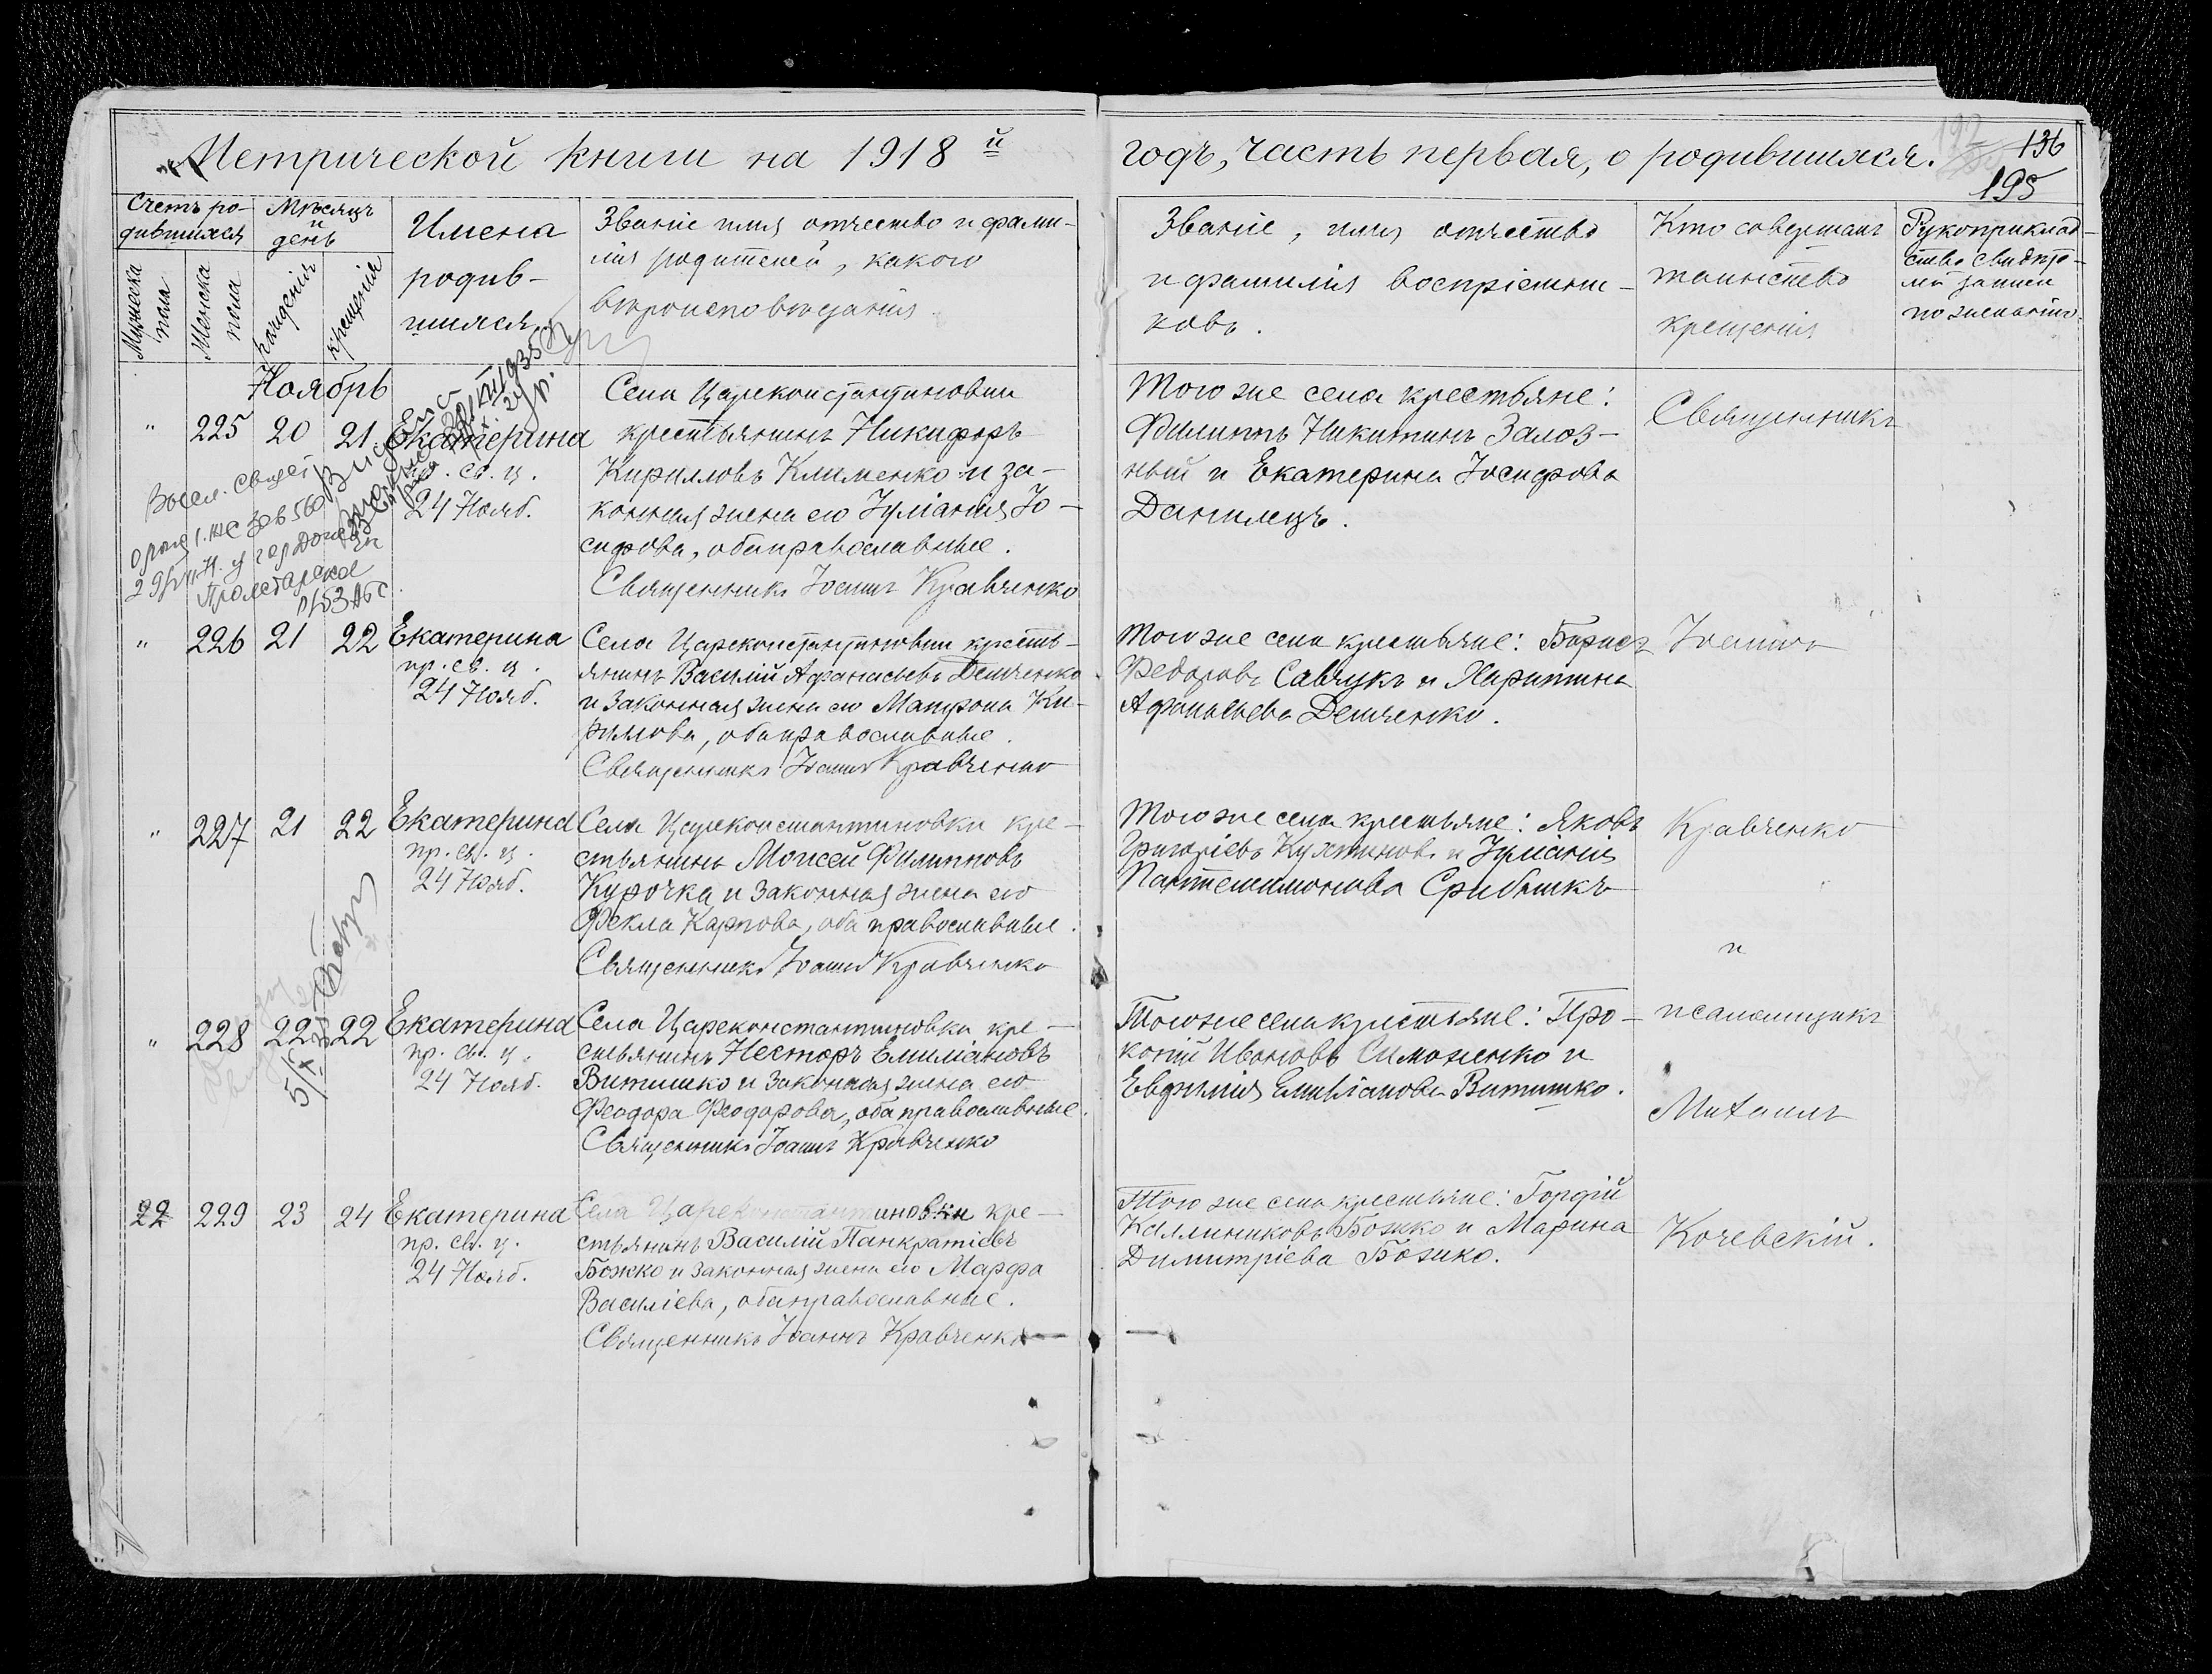 Метрической книги на 1918й
годъ, часть первая, о родившихся.
136
195
Счетъ ро-
дившихся
Мѣсяцъ
и
день
Мужеска
пола
Женска
пола
рожденія
крещенія
Имена
родив-
шихся
Званіе имя отчество и фами-
лія родителей, какого
вѣроисповѣданія.
Званіе, имя, отчество
и фамилія воспріемни-
ковъ.
Кто совершалъ
таинство
крещенія
Рукоприклад-
ство свидѣте-
лей записи
по желанію.
Ноябрь
" 225 20 21 Екатерина
св. ц.
24 Нояб.
Села Цареконстантиновки
крестьянинъ Никифоръ
Кирилловъ Клименко и за-
конная жена его Іуліанія Іо-
сифова, оба православные.
Священникъ Іоаннъ Кравченко
Того же села крестьяне:
Филиппъ Никитинъ Залоз-
ный и Екатерина Іосифова
Данилецъ.
Священникъ
Пролетарское
ЗАГС
" 226 21 22 Екатерина
пр. св. ц.
24 Нояб.
Села Цареконстантиновки кресть-
янинъ Василій Афанасьевъ Демченко
и законная жена его Матрона Ки-
рилова, оба православные.
Священникъ Іоаннъ Кравченко
Того же села крестьяне: Борисъ
Федоровъ Савчукъ и Харитина
Афанасьева Демченко.
Іоаннъ
" 227 21 22 Екатерина
пр. св. ц.
24 Нояб.
Села Цареконстантиновки кре-
стьянинъ Моисей Филипповъ
Курочка и законная жена его
Фекла Карпова, оба православные.
Священникъ Іоаннъ Кравченко
Того же села крестьяне: Яковъ
Григоріевъ и Іуліанія
Пантелеимонова
Кравченко
и
" 228 22 22 Екатерина
пр. св. ц.
24 Нояб.
Села Цареконстантиновки кре-
стьянинъ Несторъ Емиліановъ
Витишко и законная жена его
Феодора Феодорова, оба православные.
Священникъ Іоаннъ Кравченко
Того же села крестьяне: Про-
копій Ивановъ Симоненко и
Евфимія Емиліанова Витишко.
псаломщикъ
Михаилъ
22 229 23 24 Екатерина
пр. св. ц.
24 Нояб.
Села Цареконстантиновки кре-
стьянинъ Василій Панкратіевъ
Божко и законная жена его Марфа
Василіева, оба православные.
Священникъ Іоаннъ Кравченко
Того же села крестьяне: Гордій
Каллиниковъ Божко и Марина
Димитріева Божко.
Кочевскій.